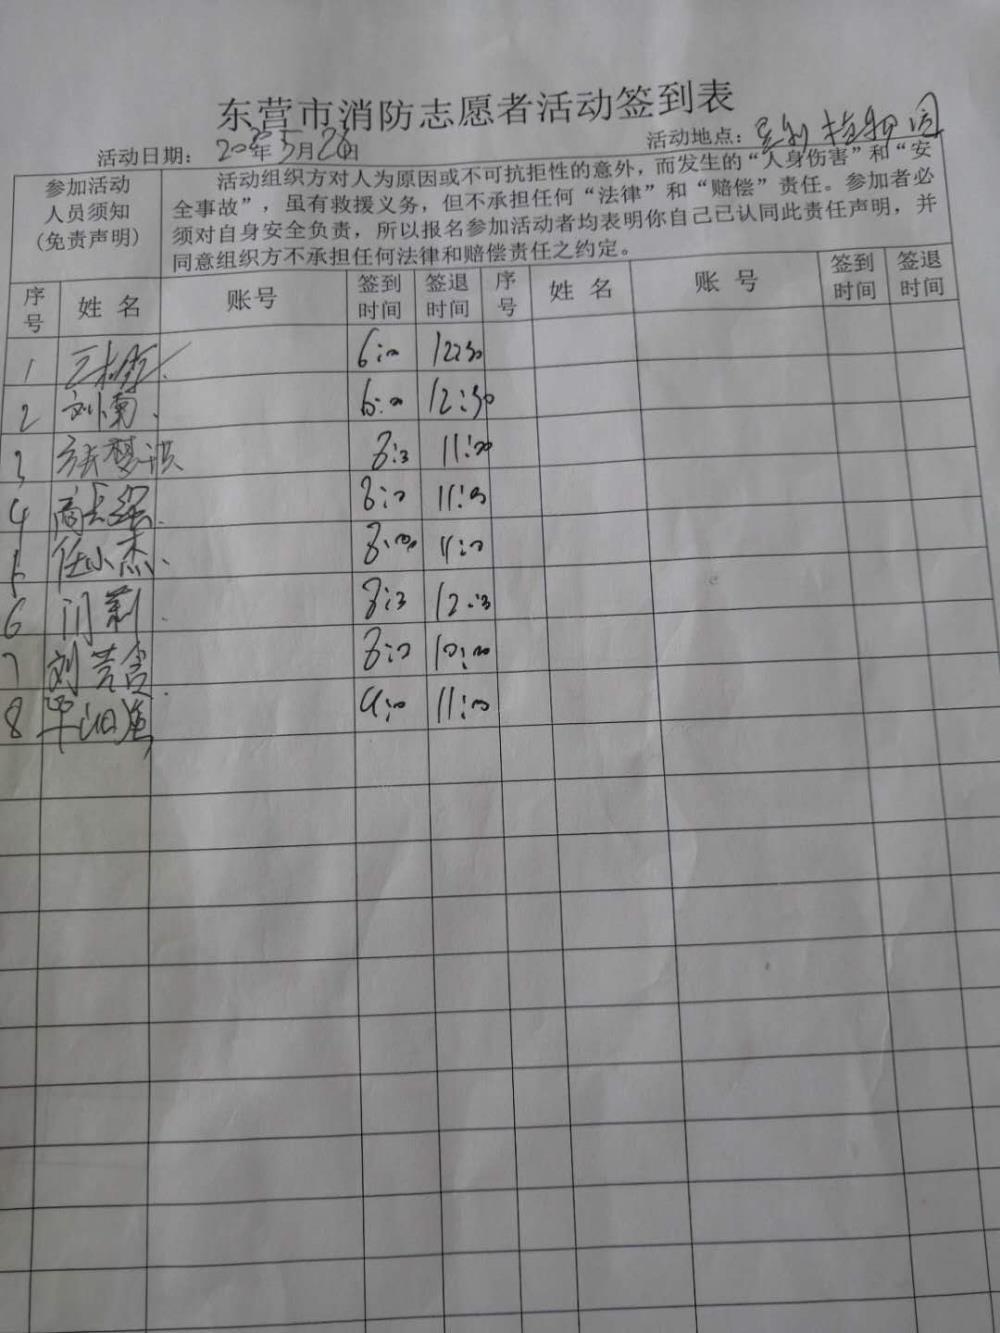 东营市消防志愿者活动签到表
活动日期： 年5月26日 活动地点： 植物园
参加活动人员须知(免责声明)
活动组织方对人为原因或不可抗拒性的意外，而发生的“人身伤害”和“安
全事故”，虽有救援义务，但不承担任何“法律”和“赔偿”责任。参加者必
须对自身安全负责，所以报名参加活动者均表明你自己已认同此责任声明，并
同意组织方不承担任何法律和赔偿责任之约定。
序号 姓名 账号 签到时间 签退时间 序号 姓名 账号 签到时间 签退时间
1 6:00 12:30
2 刘小菊 6:00 12:30
3 张梦 8:00 11:00
4 商 8:00 11:00
5 任小杰 8:00 11:00
6 门莉 8:00 12:00
7 刘芸含 8:00 10:00
8 9:00 11:00